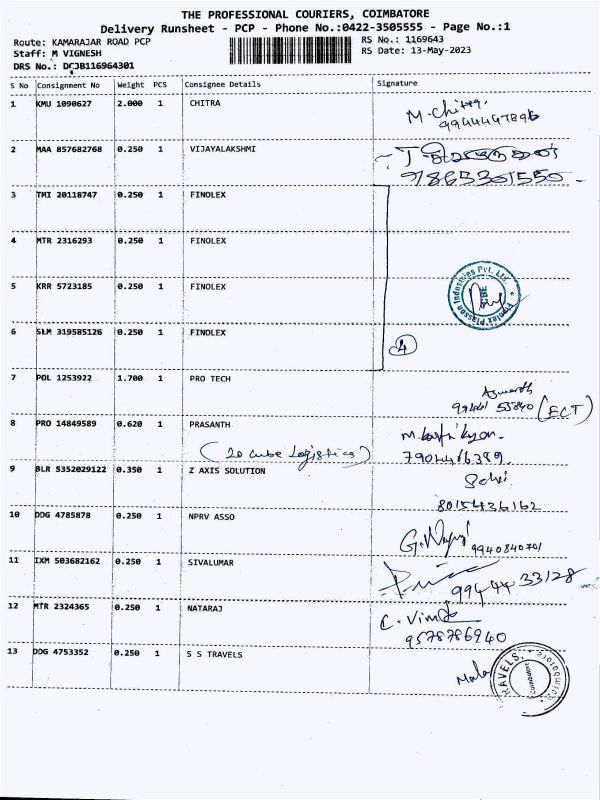 THE PROFESSIONAL COURIERS, COIMBATORE
Delivery Runsheet - PCP - Phone No.:0422-3505555 - Page No.:1
Route: KAMARAJAR ROAD PCP
RS No.: 1169643
Staff: M VIGNESH
RS Date: 13-May-2023
DRS No.:
S No Consignment No Weight PCS Consignee Details Signature
1 KMU 1090627 2.000 1 CHITRA
M. Chitra.
9944447896
2 MAA 857682768 0.250 1 VIJAYALAKSHMI
97865301550
3 TMI 20118747 0.250 1 FINOLEX
4 MTR 2316293 0.250 1 FINOLEX
5 KRR 5723185 0.250 1 FINOLEX
Finolex Plasson Industries Pvt. Ltd.
CBE
6 SLM 319585126 0.250 1 FINOLEX
4
7 POL 1253922 1.700 1 PRO TECH
(ECT)
8 PRO 14849589 0.620 1 PRASANTH
M. Karthikeyan.
(20 cube Logistics)
7904416389.
9 BLR 5352029122 0.350 1 Z AXIS SOLUTION
Selvi
8015436162
10 DDG 4785878 0.250 1 NPRV ASSO
9940840701
11 IXM 503682162 0.250 1 SIVALUMAR
99444 33128
12 MTR 2324365 0.250 1 NATARAJ
C. Vinoda
9578786940
13 DDG 4753352 0.250 1 S S TRAVELS
Mala
TRAVELS.
Coimbatore